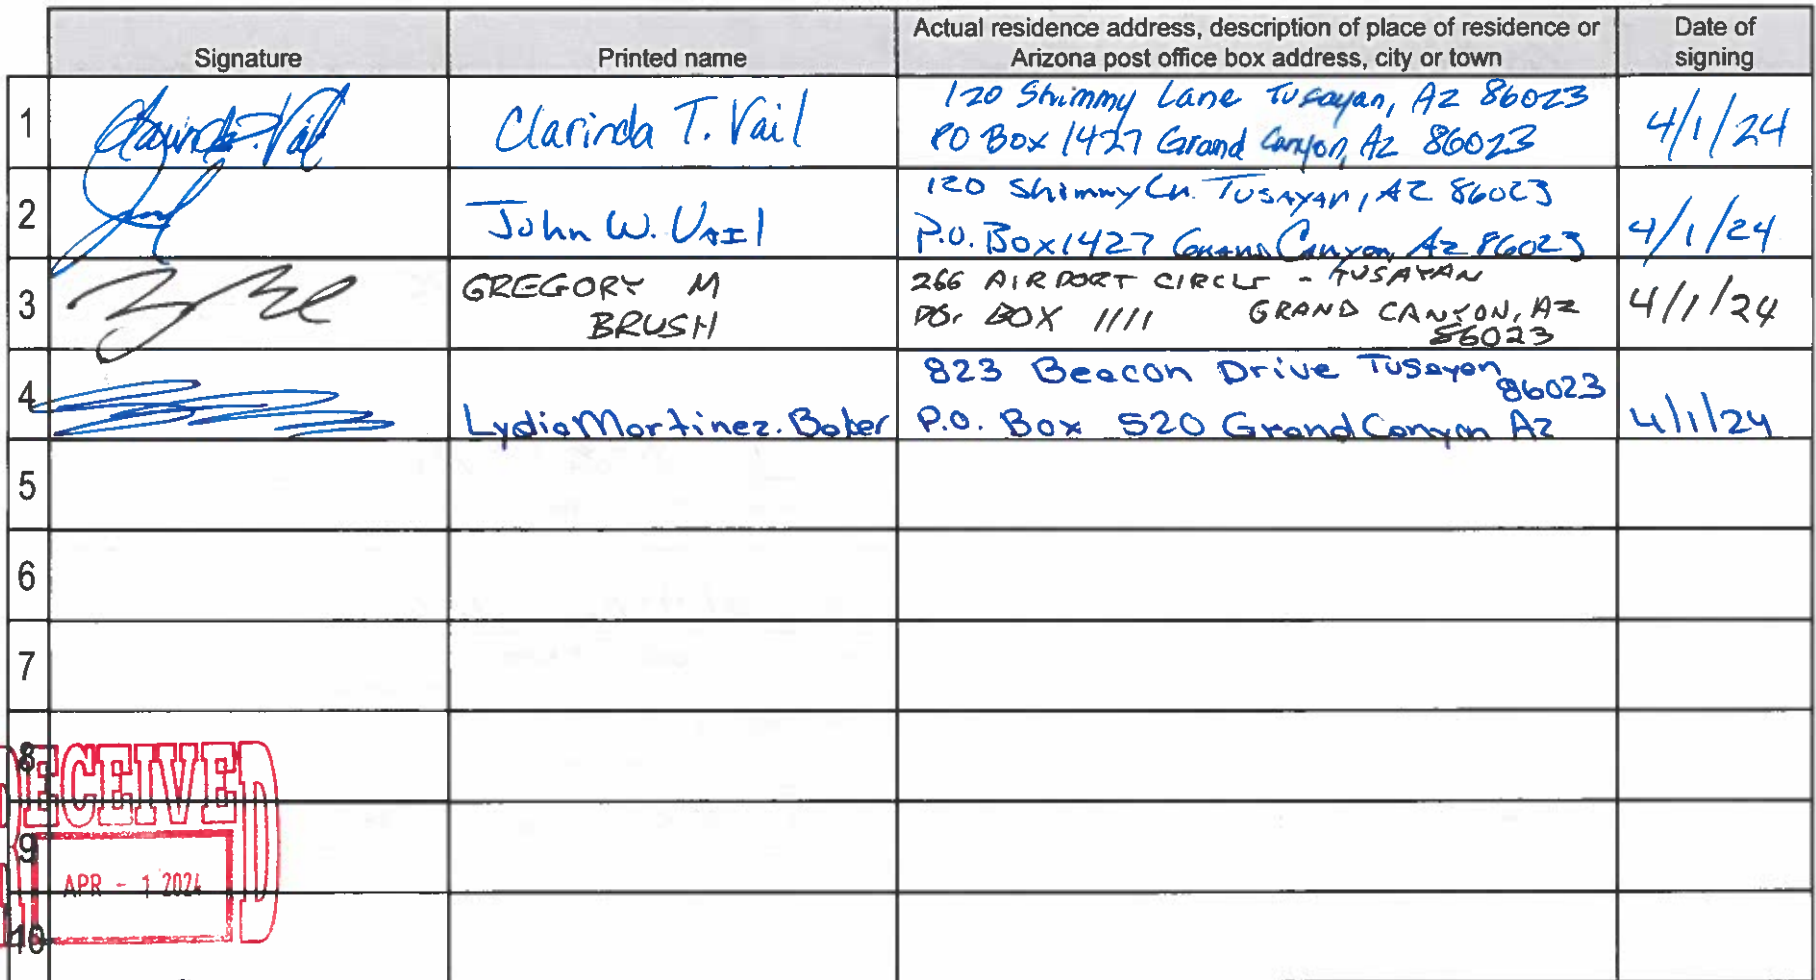 Signature
Printed name
Actual residence address, description of place of residence or
Arizona post office box address, city or town
Date of
signing
1
Clarinda T. Vail
Clarinda T. Vail
120 Shimmy Lane Tusayan, Az 86023
PO Box 1427 Grand Canyon, Az 86023
4/1/24
2
John W. Vail
120 Shimmy Ln. Tusayan, AZ 86023
P.O. Box 1427 Grand Canyon, Az 86023
4/1/24
3
GREGORY M
BRUSH
266 AIRPORT CIRCLE - TUSAYAN
PO. BOX 1111 GRAND CANYON, AZ
86023
4/1/24
4
Lydia Martinez-Baker
823 Beacon Drive Tusayan
86023
P.O. Box 520 Grand Canyon Az
4/1/24
5
6
7
8
RECEIVED
9
APR - 1 2024
10